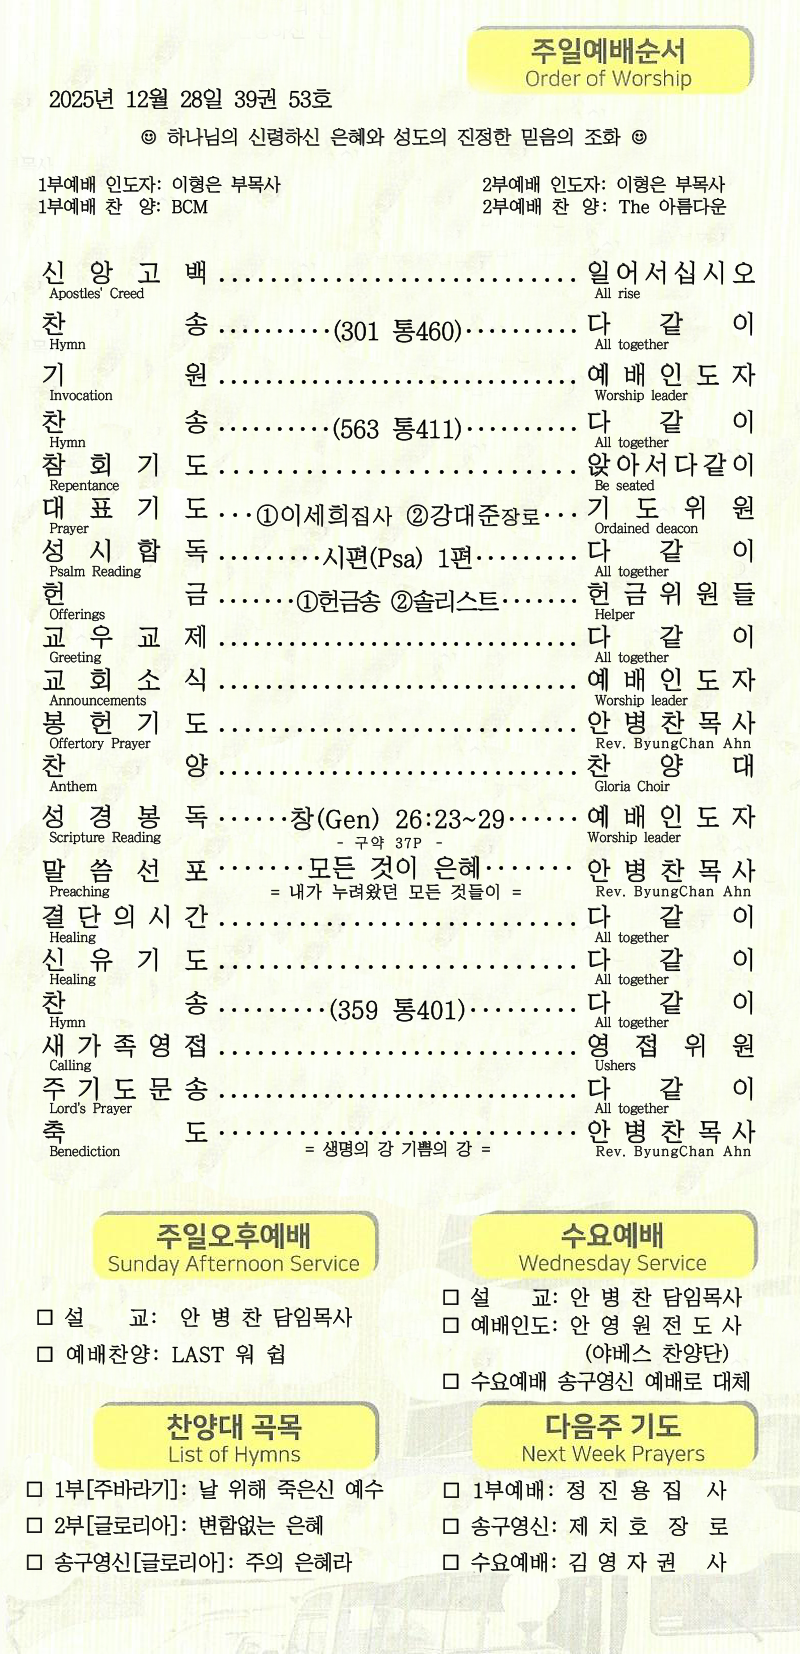 주일예배순서
Order of Worship
2025년 12월 28일 39권 53호
☺ 하나님의 신령하신 은혜와 성도의 진정한 믿음의 조화 ☺
1부예배 인도자: 이형은 부목사 2부예배 인도자: 이형은 부목사
1부예배 찬 양: BCM 2부예배 찬 양: The 아름다운
신앙고백 ............................. 일어서십시오
Apostles' Creed All rise
찬 송 ··········(301 통460)·········· 다 같 이
Hymn All together
기 원 .............................. 예배인도자
Invocation Worship leader
찬 송 ··········(563 통411)·········· 다 같 이
Hymn All together
참회기도 ............................. 앉아서다같이
Repentance Be seated
대표기도 ···①이세희집사 ②강대준장로··· 기도위원
Prayer Ordained deacon
성시합독 ·········시편(Psa) 1편········· 다 같 이
Psalm Reading All together
헌 금 ·······①헌금송 ②솔리스트······· 헌금위원들
Offerings Helper
교우교제 .............................. 다 같 이
Greeting All together
교회소식 .............................. 예배인도자
Announcements Worship leader
봉헌기도 .............................. 안병찬목사
Offertory Prayer Rev. ByungChan Ahn
찬 양 .............................. 찬 양 대
Anthem Gloria Choir
성경봉독 ······창(Gen) 26:23~29······ 예배인도자
Scripture Reading - 구약 37P - Worship leader
말씀선포 ·······모든 것이 은혜······· 안병찬목사
Preaching = 내가 누려왔던 모든 것들이 = Rev. ByungChan Ahn
결단의시간 .............................. 다 같 이
Healing All together
신유기도 .............................. 다 같 이
Healing All together
찬 송 ·········(359 통401)········· 다 같 이
Hymn All together
새가족영접 .............................. 영접위원
Calling Ushers
주기도문송 .............................. 다 같 이
Lord's Prayer All together
축 도 .............................. 안병찬목사
Benediction = 생명의 강 기쁨의 강 = Rev. ByungChan Ahn
주일오후예배
Sunday Afternoon Service
□ 설 교: 안 병 찬 담임목사
□ 예배찬양: LAST 워 쉽
수요예배
Wednesday Service
□ 설 교: 안 병 찬 담임목사
□ 예배인도: 안 영 원 전 도 사
(야베스 찬양단)
□ 수요예배 송구영신 예배로 대체
찬양대 곡목
List of Hymns
□ 1부[주바라기]: 날 위해 죽은신 예수
□ 2부[글로리아]: 변함없는 은혜
□ 송구영신[글로리아]: 주의 은혜라
다음주 기도
Next Week Prayers
□ 1부예배: 정 진 용 집 사
□ 송구영신: 제 치 호 장 로
□ 수요예배: 김 영 자 권 사